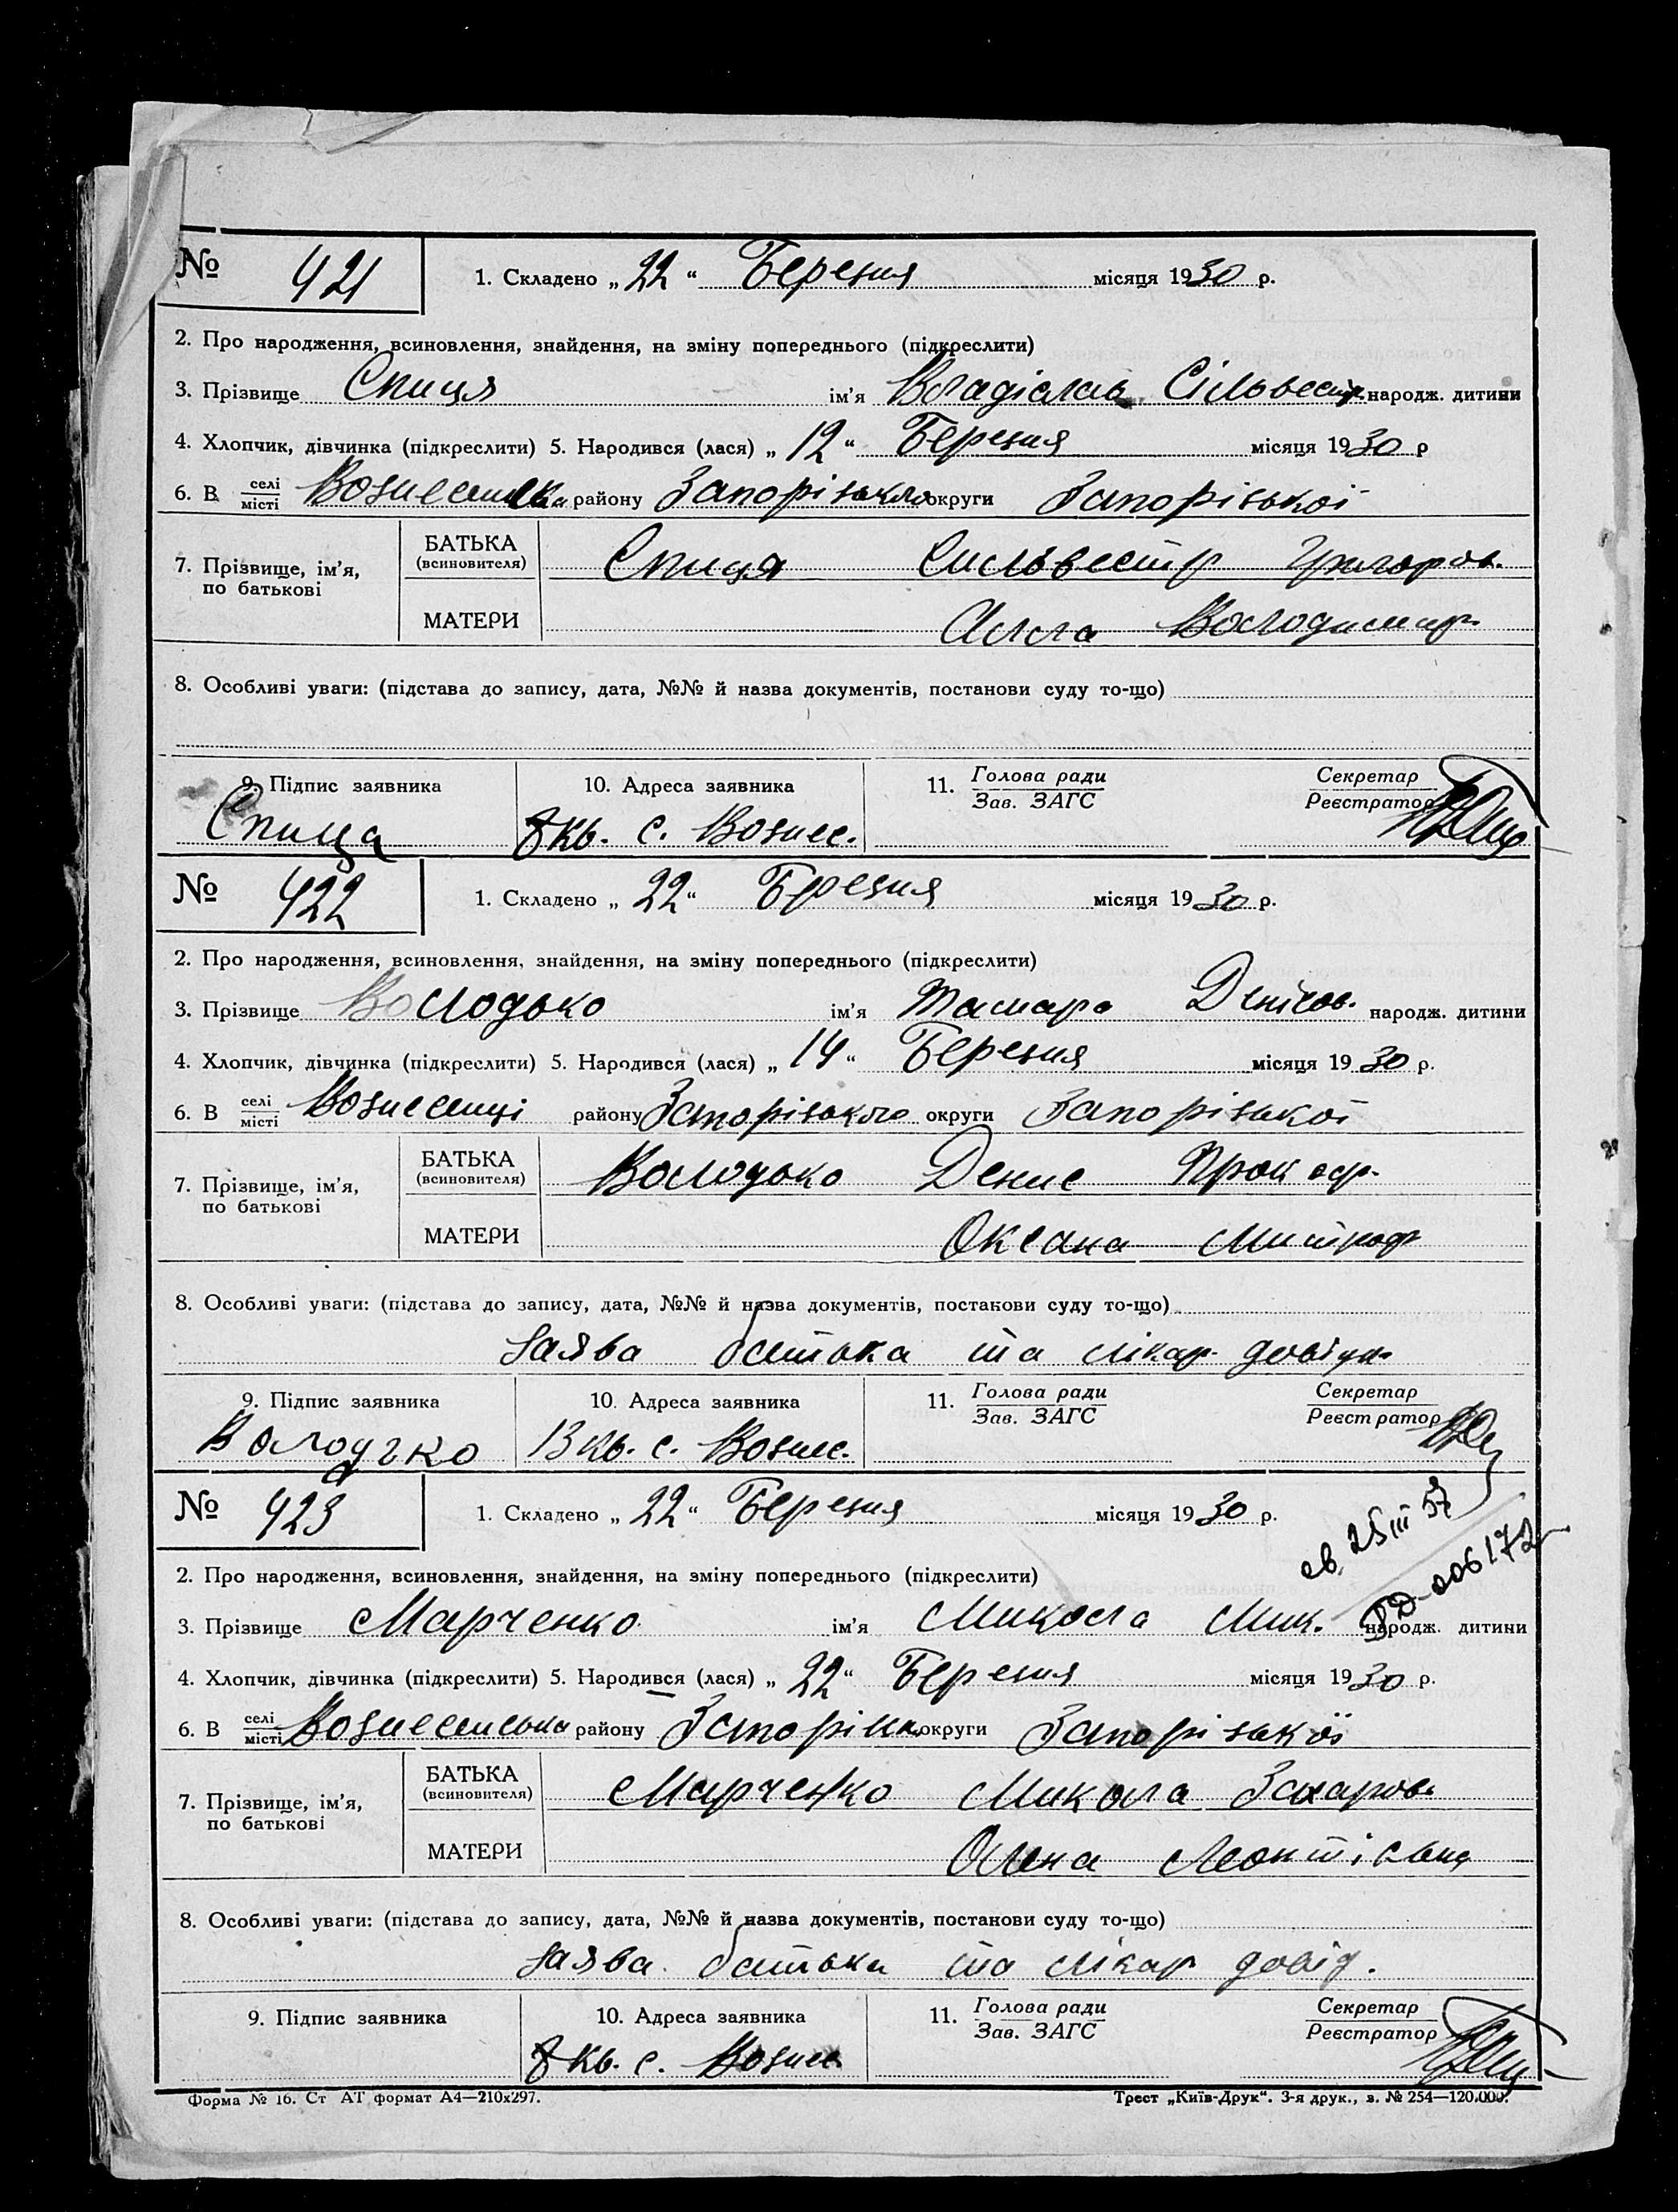 № 421 1. Складено „22“ Березня місяця 1930 р.
2. Про народження, всиновлення, знайдення, на зміну попереднього (підкреслити)
3. Прізвище Спиця ім'я Владіслав Сільвестр. народж. дитини
4. Хлопчик, дівчинка (підкреслити) 5. Народився (лася) „12“ Березня місяця 1930 р
6. В селі місті району Запорізького округи Запорізької
7. Прізвище, ім'я, по батькові БАТЬКА (всиновителя) Спиця Сильвестр Григоров.
МАТЕРИ Алла Володимир.
8. Особливі уваги: (підстава до запису, дата, №№ й назва документів, постанови суду то-що)
9. Підпис заявника 10. Адреса заявника 11. Голова ради Зав. ЗАГС Секретар Реєстратор
Спица 8 кв. с. Вознес.
№ 422 1. Складено „22“ Березня місяця 1930 р.
2. Про народження, всиновлення, знайдення, на зміну попереднього (підкреслити)
3. Прізвище Володько ім'я Тамара Денісов. народж. дитини
4. Хлопчик, дівчинка (підкреслити) 5. Народився (лася) „14“ Березня місяця 1930 р.
6. В селі місті Вознесенці району Запорізького округи Запорізької
7. Прізвище, ім'я, по батькові БАТЬКА (всиновителя) Володько Денис
МАТЕРИ Оксана Митроф
8. Особливі уваги: (підстава до запису, дата, №№ й назва документів, постанови суду то-що)
Заява батька та лікар. довідк.
9. Підпис заявника 10. Адреса заявника 11. Голова ради Зав. ЗАГС Секретар Реєстратор
Володько 13 кв. с. Вознес.
№ 423 1. Складено „22“ Березня місяця 1930 р.
св. 25 III 57
006172
2. Про народження, всиновлення, знайдення, на зміну попереднього (підкреслити)
3. Прізвище Марченко ім'я Микола Мик. народж. дитини
4. Хлопчик, дівчинка (підкреслити) 5. Народився (лася) „22“ Березня місяця 1930 р.
6. В селі місті району округи Запорізької
7. Прізвище, ім'я, по батькові БАТЬКА (всиновителя) Марченко Микола Захаров.
МАТЕРИ Олена Леонтієвна
8. Особливі уваги: (підстава до запису, дата, №№ й назва документів, постанови суду то-що)
Заява батька та лікар довід.
9. Підпис заявника 10. Адреса заявника 11. Голова ради Зав. ЗАГС Секретар Реєстратор
8 кв. с. Вознес.
Форма № 16. Ст АТ формат А4—210х297. Трест „Київ-Друк“. 3-я друк., з. № 254—120.000.